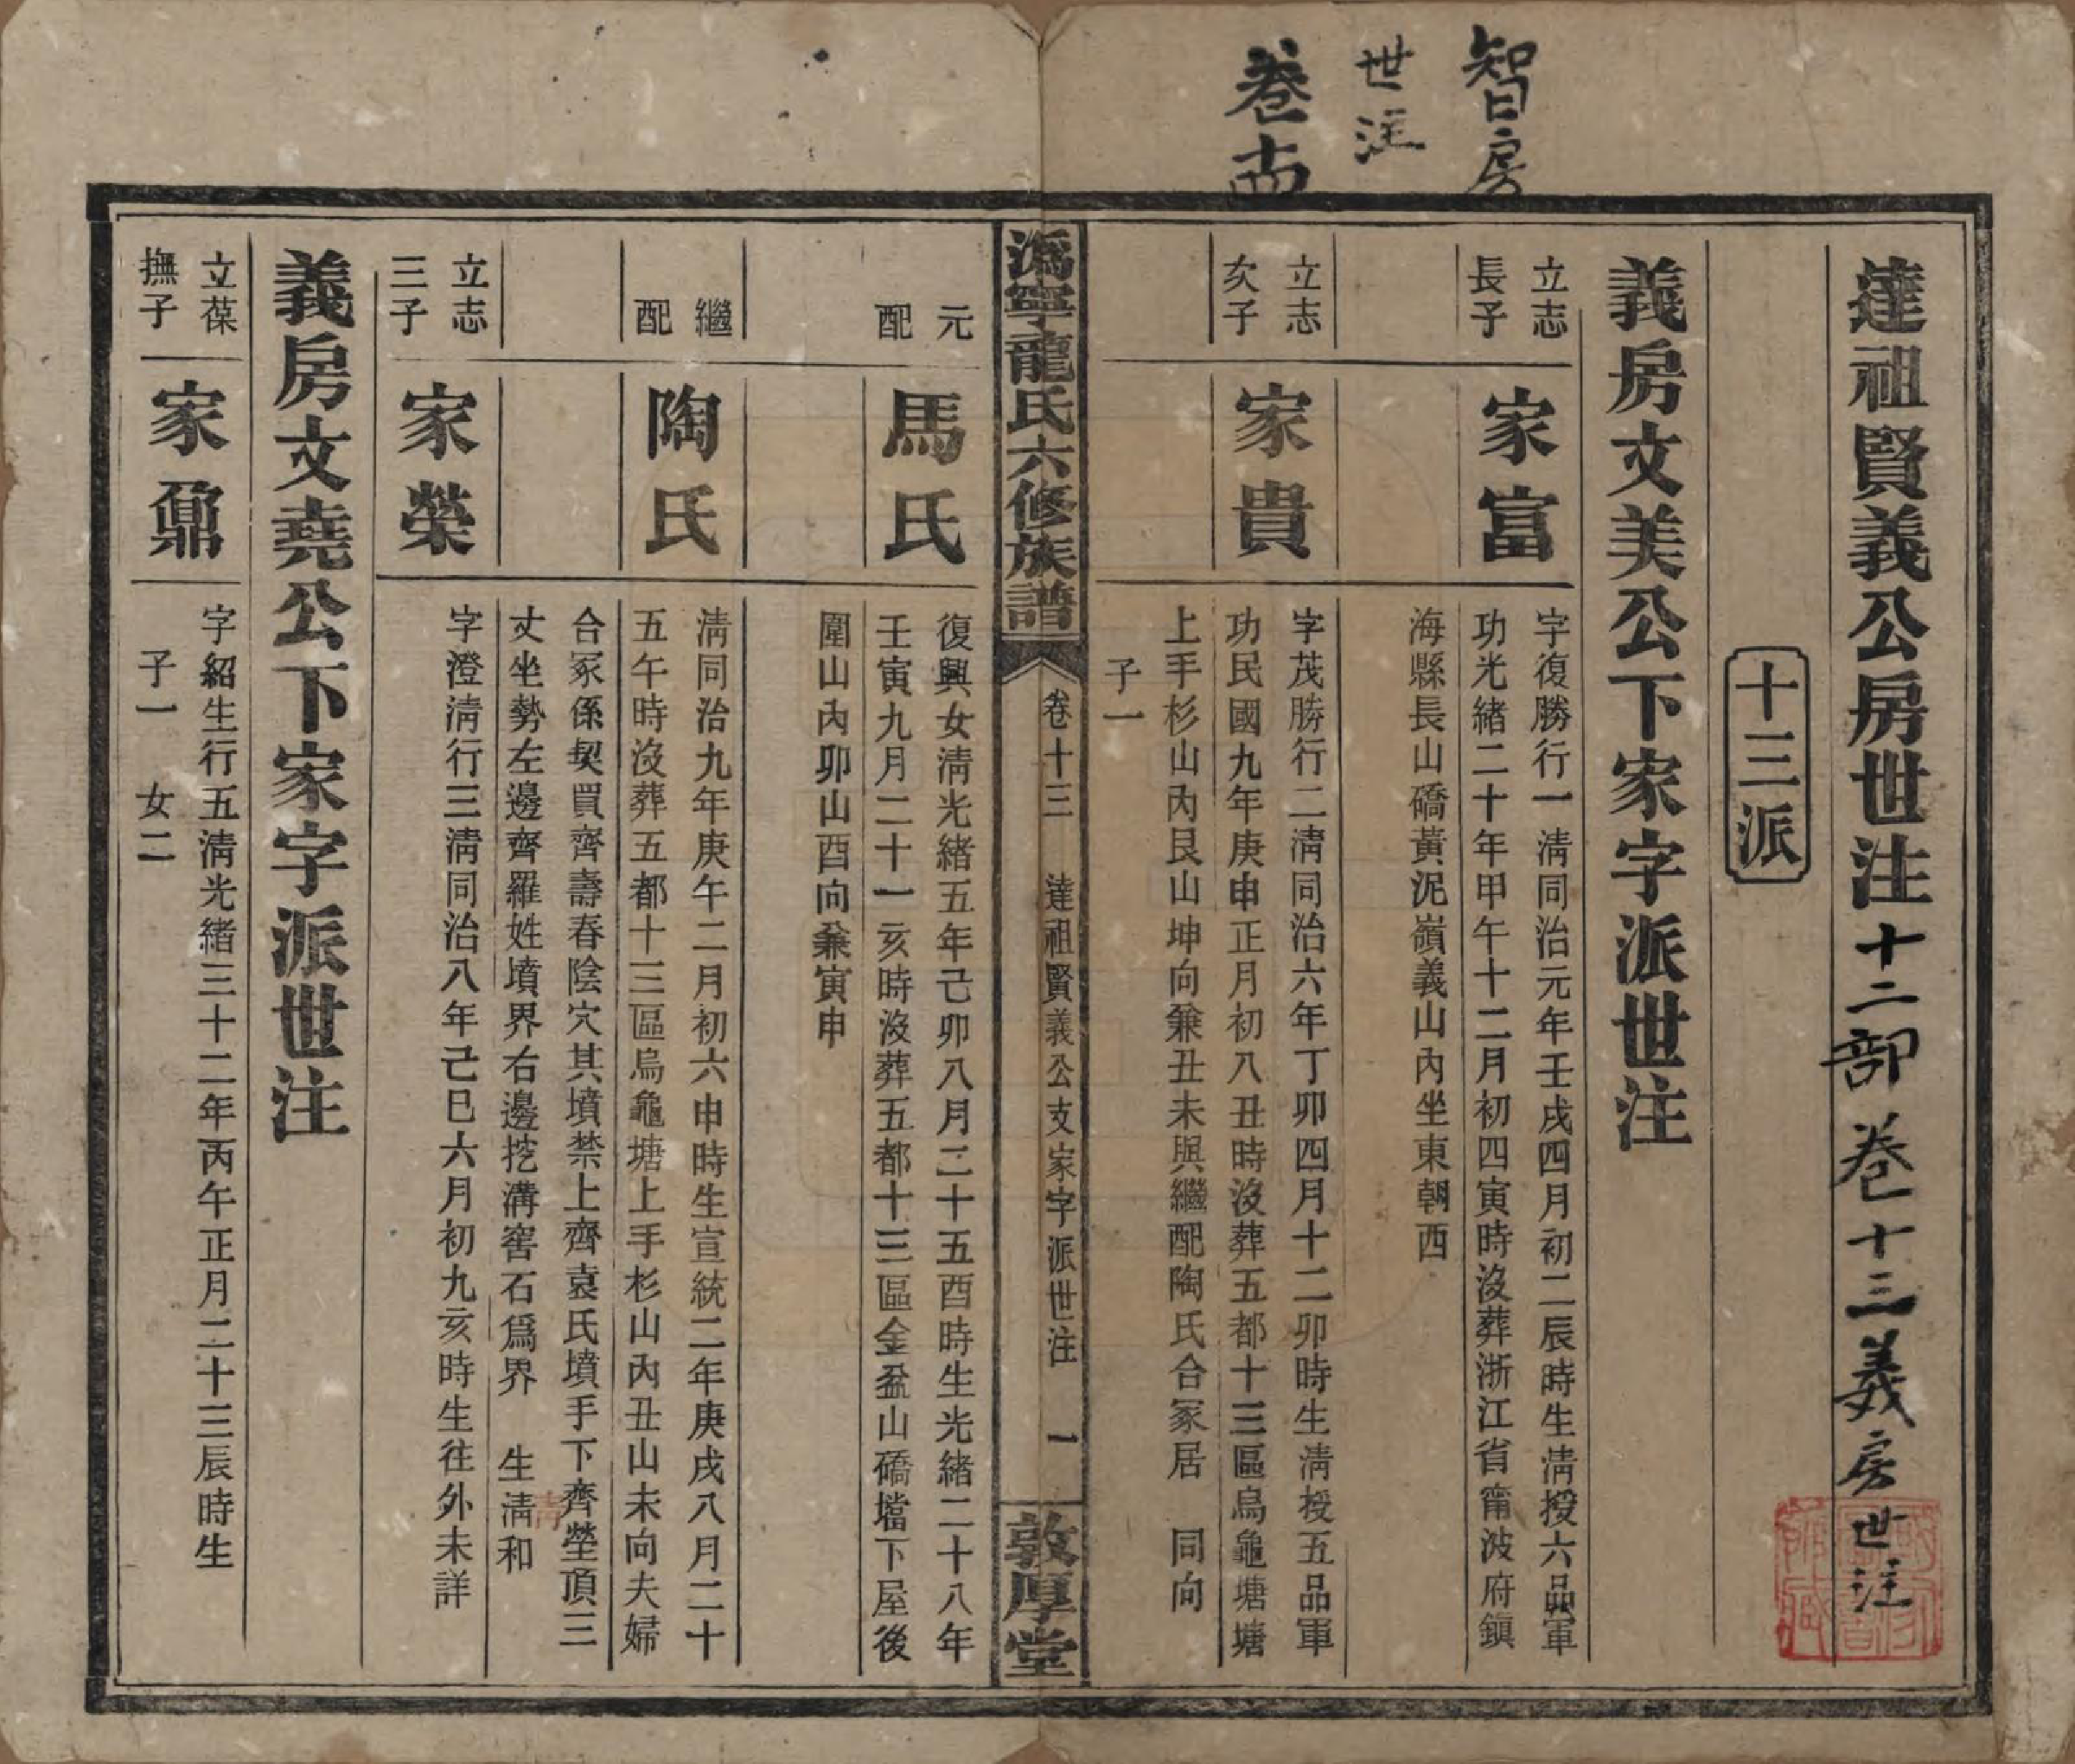 智房
世注
卷十四
達祖賢義公房世注十二部卷十三義房世注
十三派
義房文美公下家字派世注
立志
長子
家富
字復勝行一清同治元年壬戌四月初二辰時生清授六品軍
功光緒二十年甲午十二月初四寅時沒葬浙江省甯波府鎮
海縣長山礄黃泥嶺義山內坐東朝西
立志
次子
家貴
字茂勝行二清同治六年丁卯四月十二卯時生清授五品軍
功民國九年庚申正月初八丑時沒葬五都十三區烏龜塘塘
上手杉山內艮山坤向兼丑未與繼配陶氏合冢居　同向
子一
溈寧龍氏六修族譜
卷十三　達祖賢義公支家字派世注　一
敦厚堂
元
配
馬氏
復興女清光緒五年己卯八月二十五酉時生光緒二十八年
壬寅九月二十一亥時沒葬五都十三區金盆山礄壋下屋後
圍山內卯山酉向兼寅申
繼
配
陶氏
清同治九年庚午二月初六申時生宣統二年庚戌八月二十
五午時沒葬五都十三區烏龜塘上手杉山內丑山未向夫婦
合冢係契買齊壽春陰穴其墳禁上齊袁氏墳手下齊塋頂三
丈坐勢左邊齊羅姓墳界右邊挖溝窖石爲界　生清和
清
立志
三子
家榮
字澄清行三清同治八年己巳六月初九亥時生往外未詳
義房文堯公下家字派世注
立葆
撫子
家鼐
字紹生行五清光緒三十二年丙午正月二十三辰時生
子一　女二